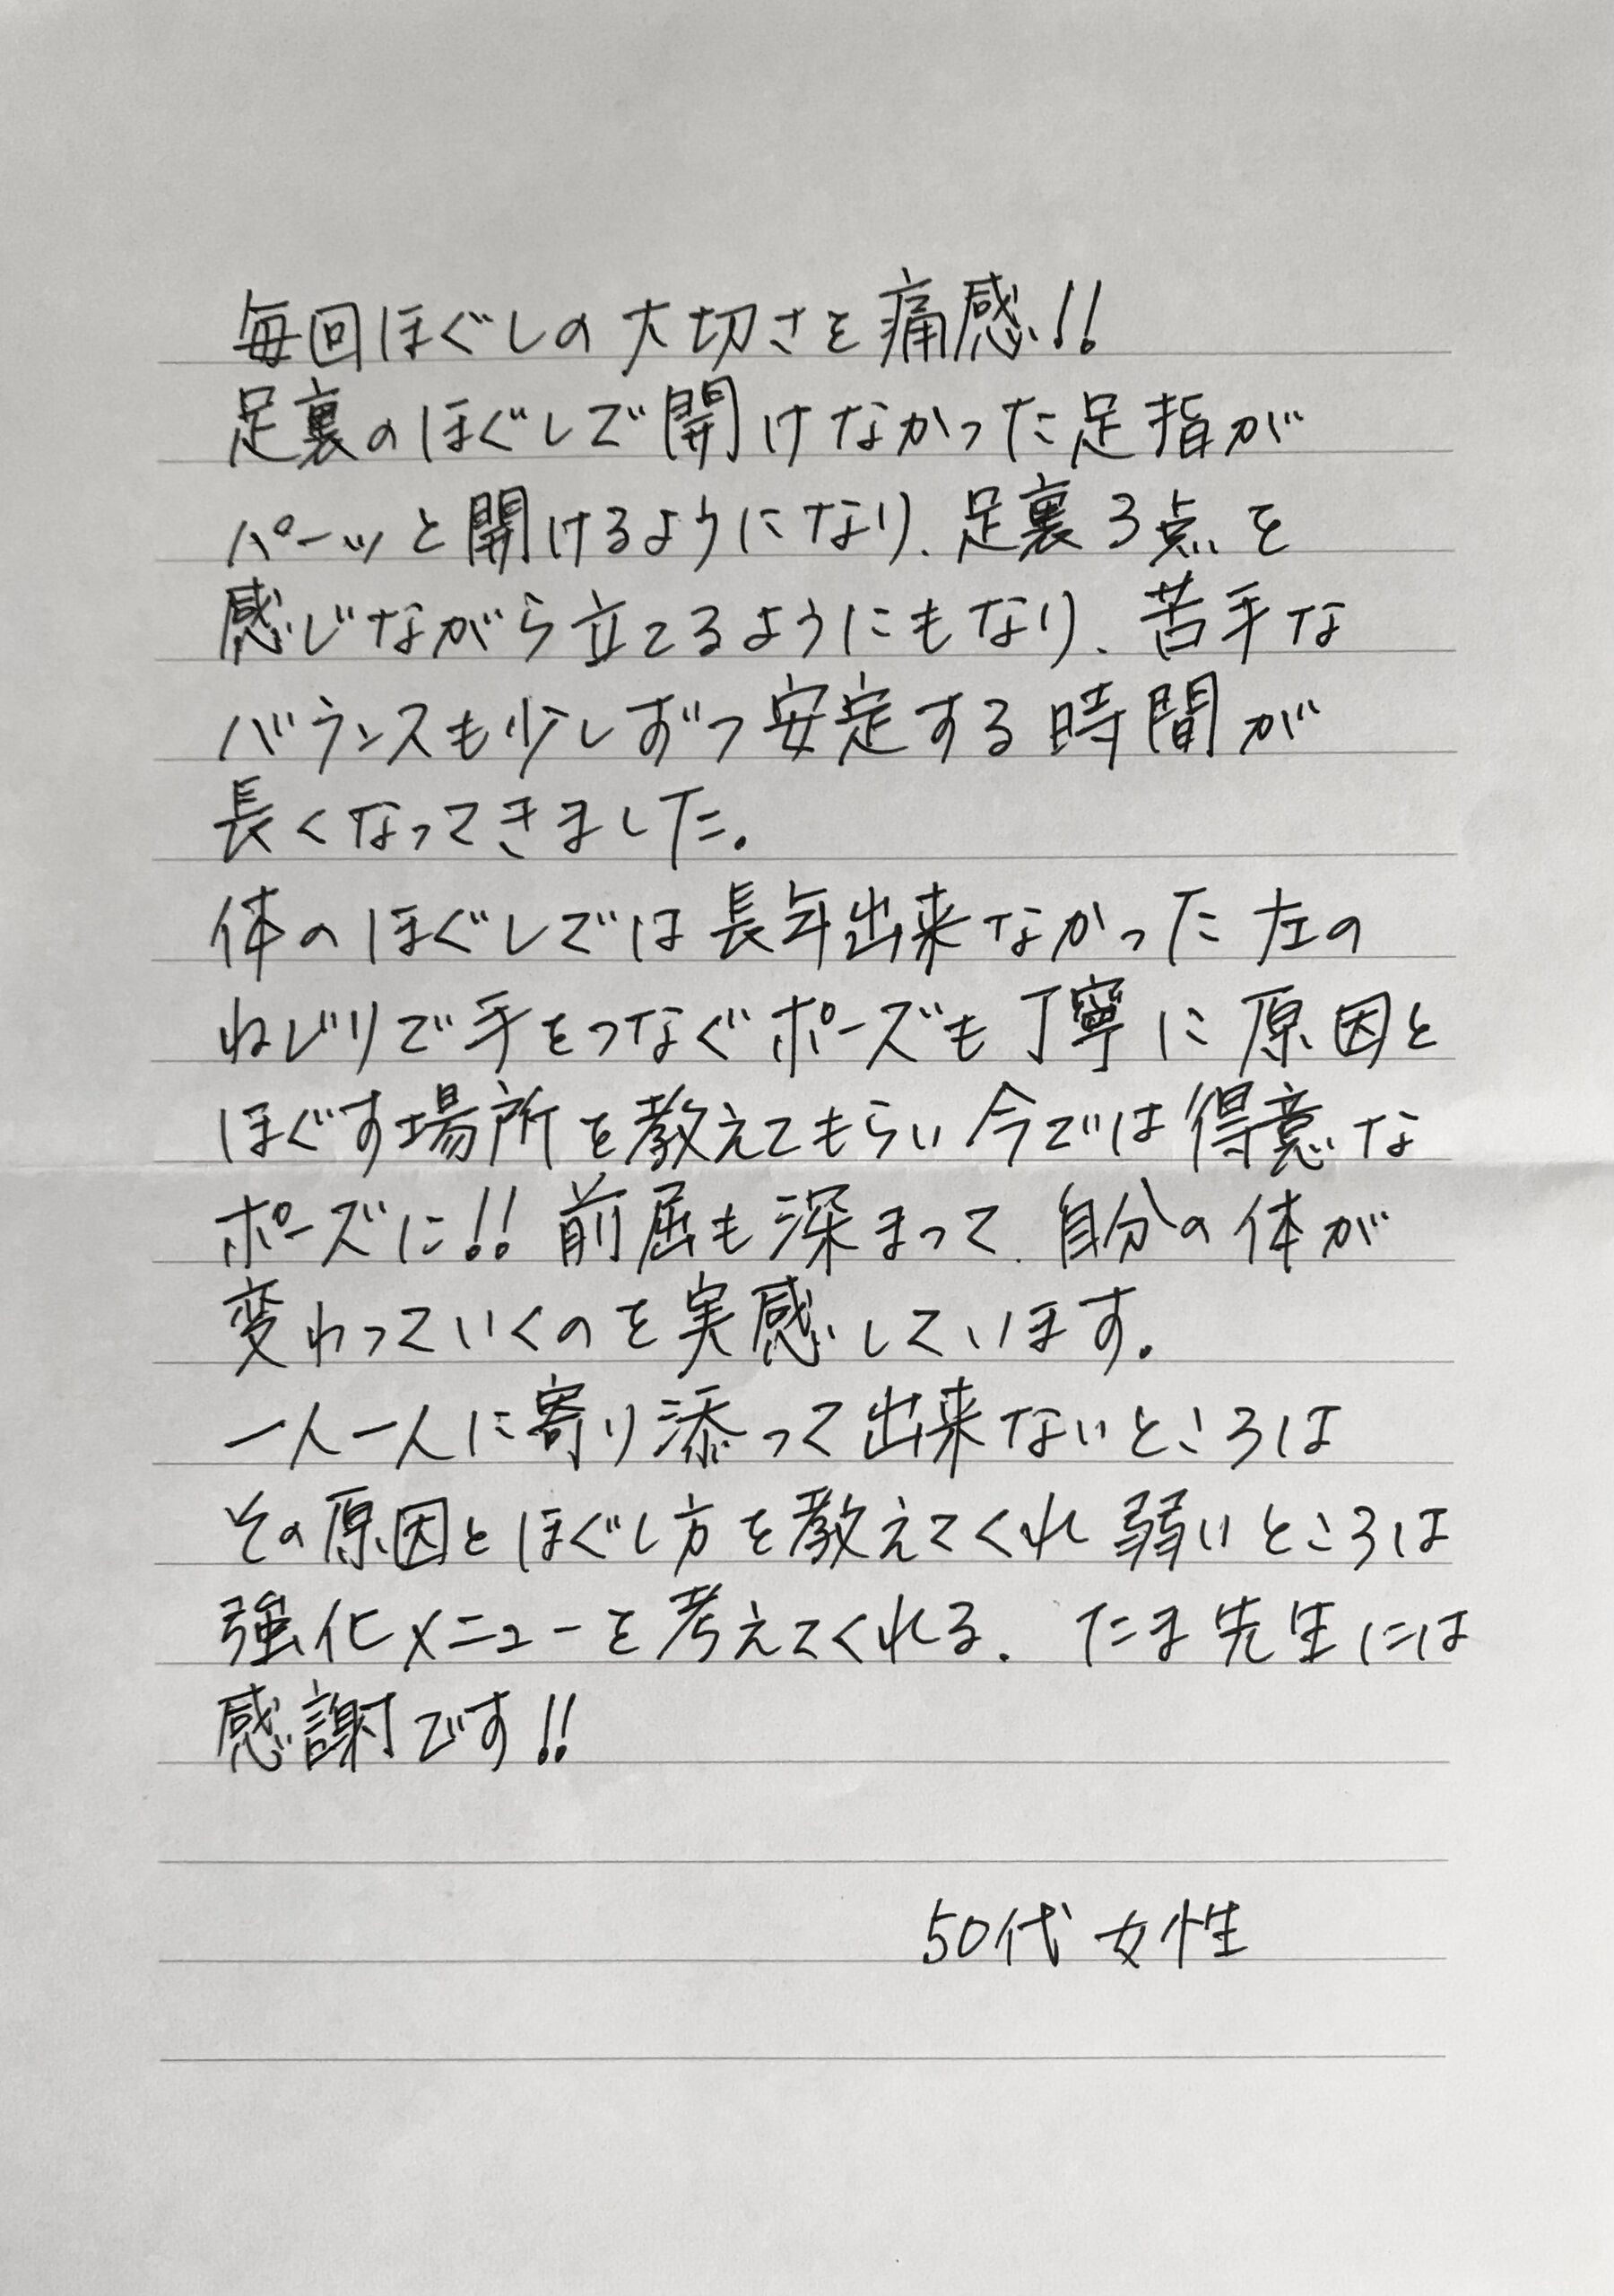 毎回ほぐしの大切さを痛感!!
足裏のほぐしで開けなかった足指が
パーッと開けるようになり、足裏3点を
感じながら立てるようにもなり、苦手な
バランスも少しずつ安定する時間が
長くなってきました。
体のほぐしでは長年出来なかった左の
ねじりで手をつなぐポーズも丁寧に原因と
ほぐす場所を教えてもらい今では得意な
ポーズに!!前屈も深まって、自分の体が
変わっていくのを実感しています。
一人一人に寄り添って出来ないところは
その原因とほぐし方を教えてくれ弱いところは
強化メニューを考えてくれる。たま先生には
感謝です!!
50代 女性